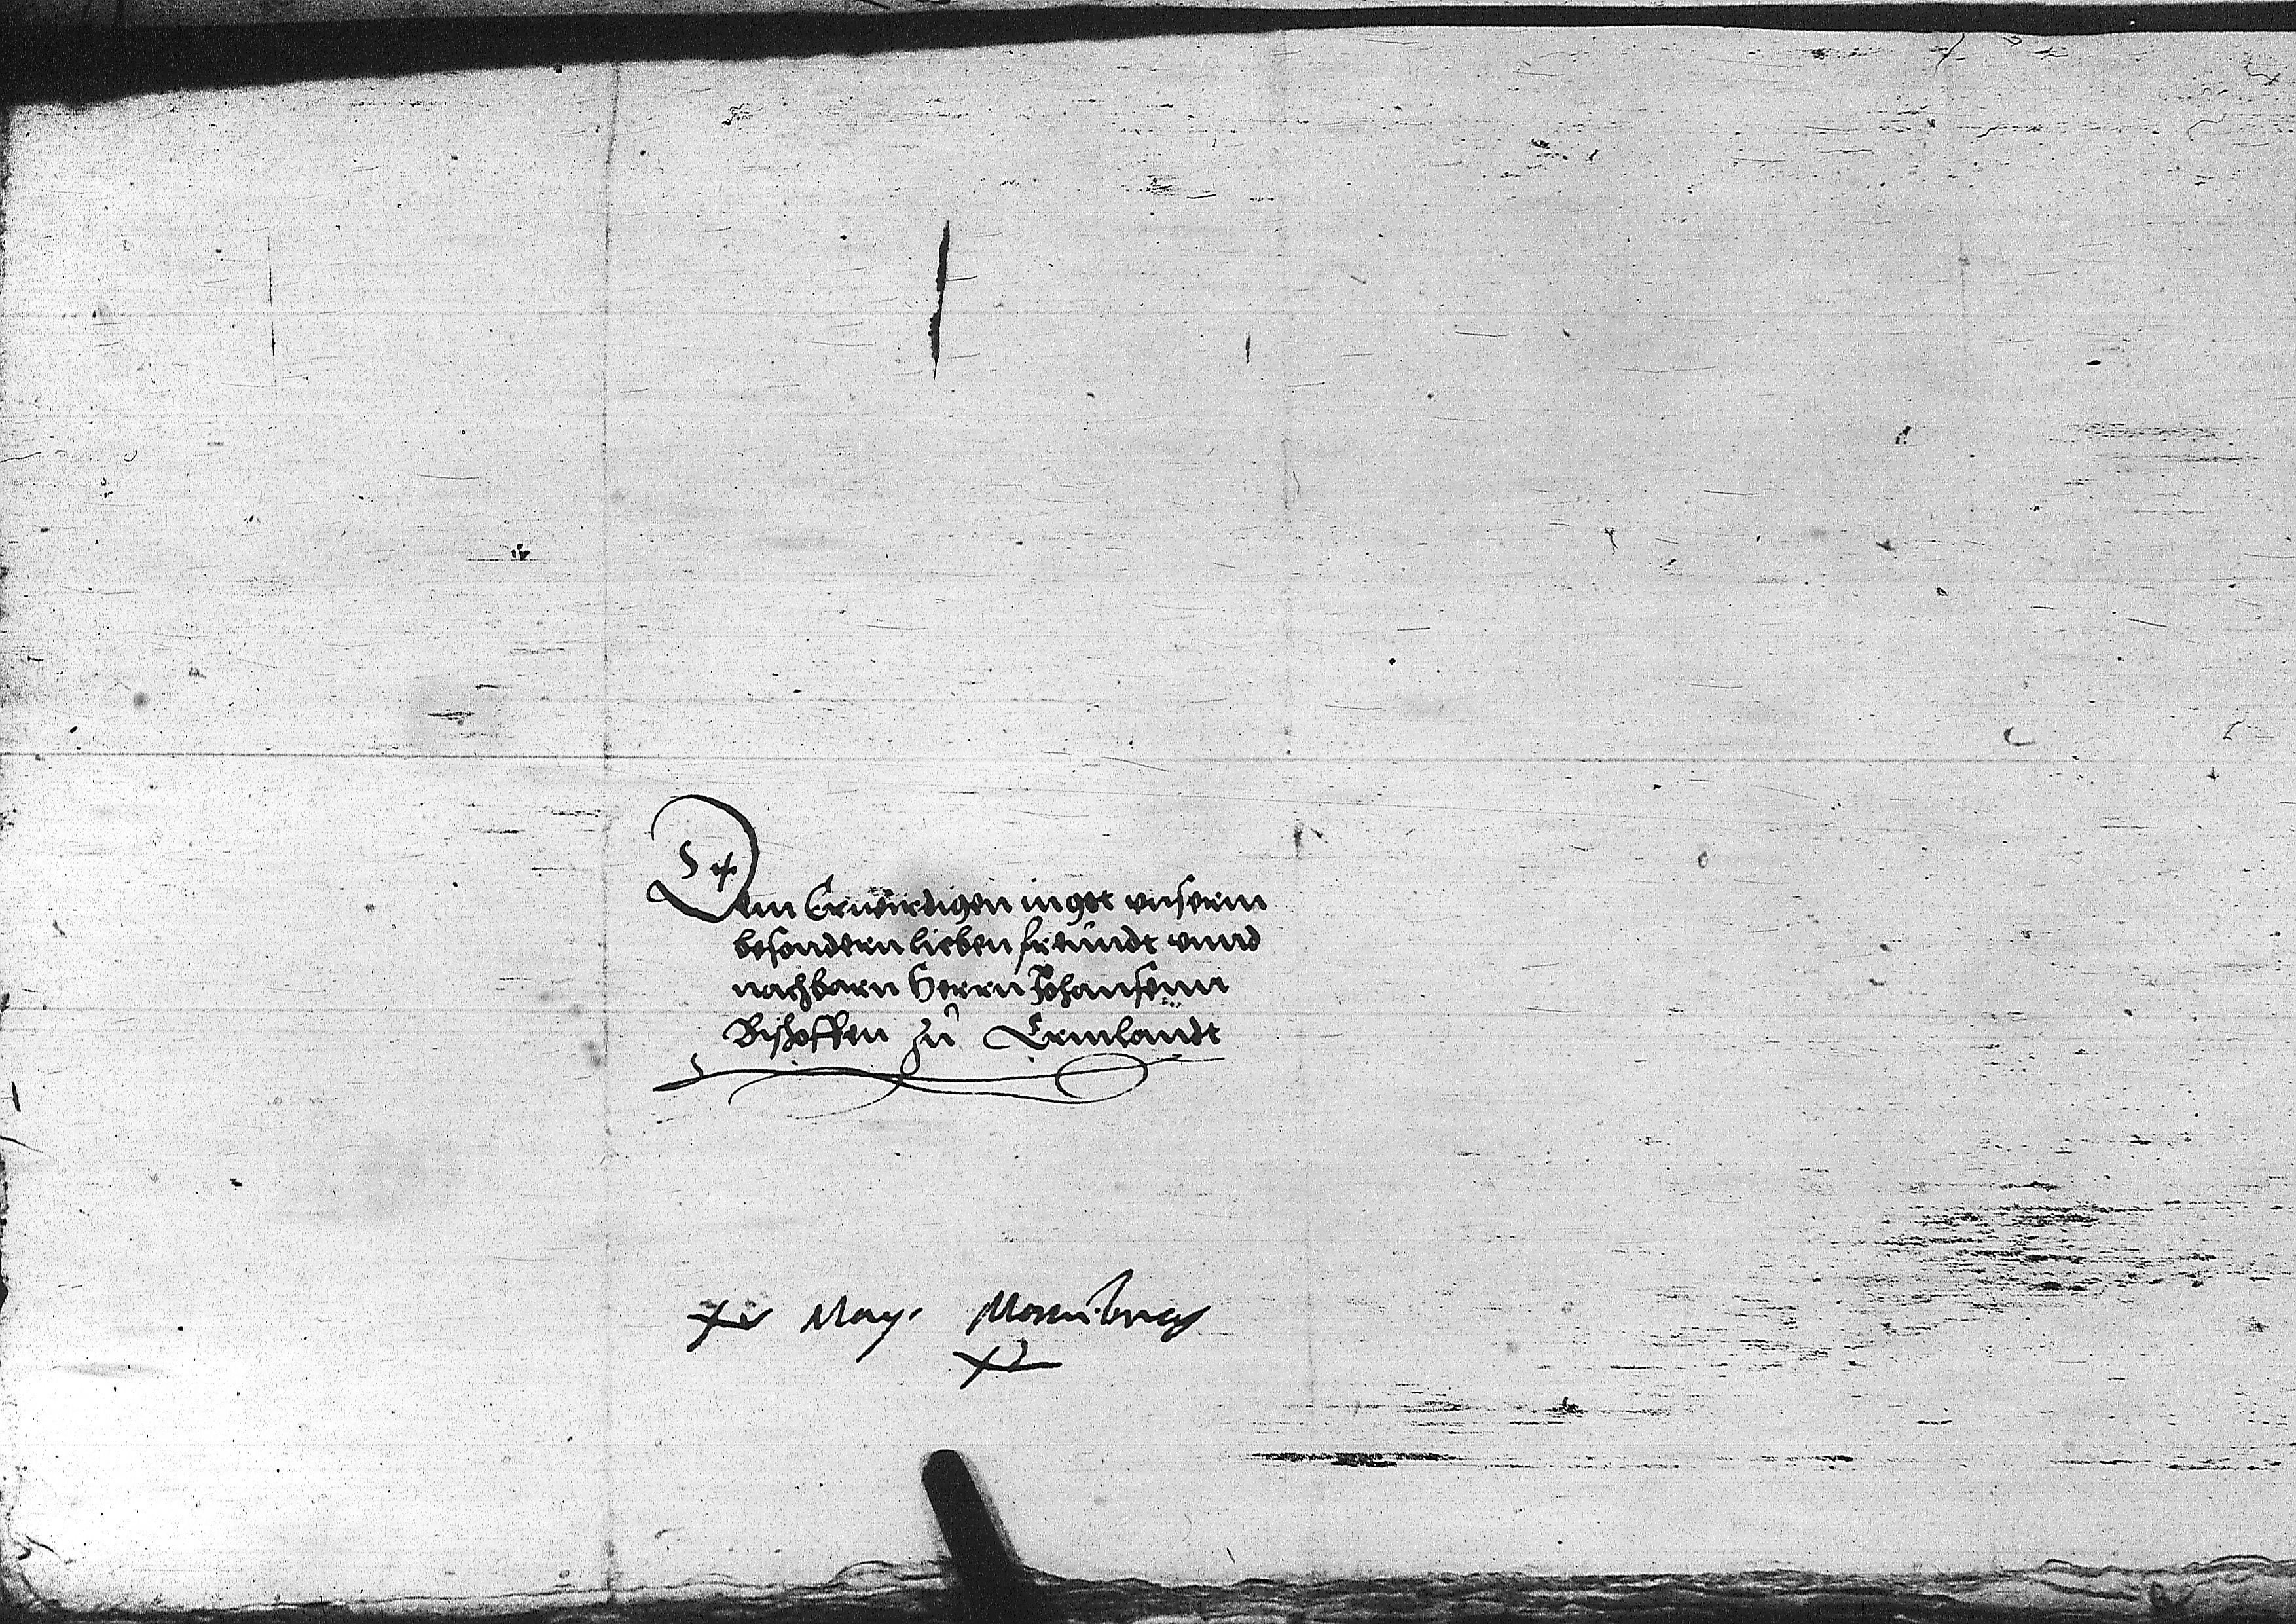 Dem Erwirdigen in got vnserm
besondern lieben freundt vnnd
nachbarn Herrn Johansenn
Bischoffen zu Ermlandt
May